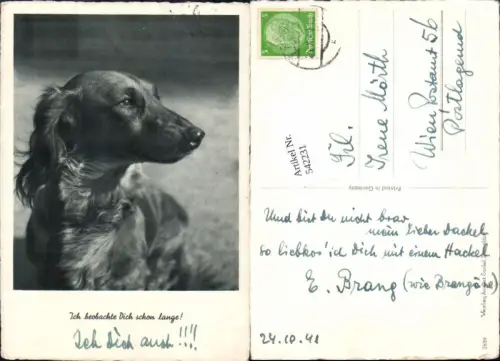 Ich beobachte Dich schon lange!
Ich Dich auch!!!
Artikel Nr.
542231
Frl.
Irene Mörth
Wien Postamt 56
Postlagernd
Printed in Germany
Und bist Du nicht brav
mein lieber Dackel
so liebkos' id Dich mit einem Hackel
E. Brang (wie Brangäne)
24.10.41